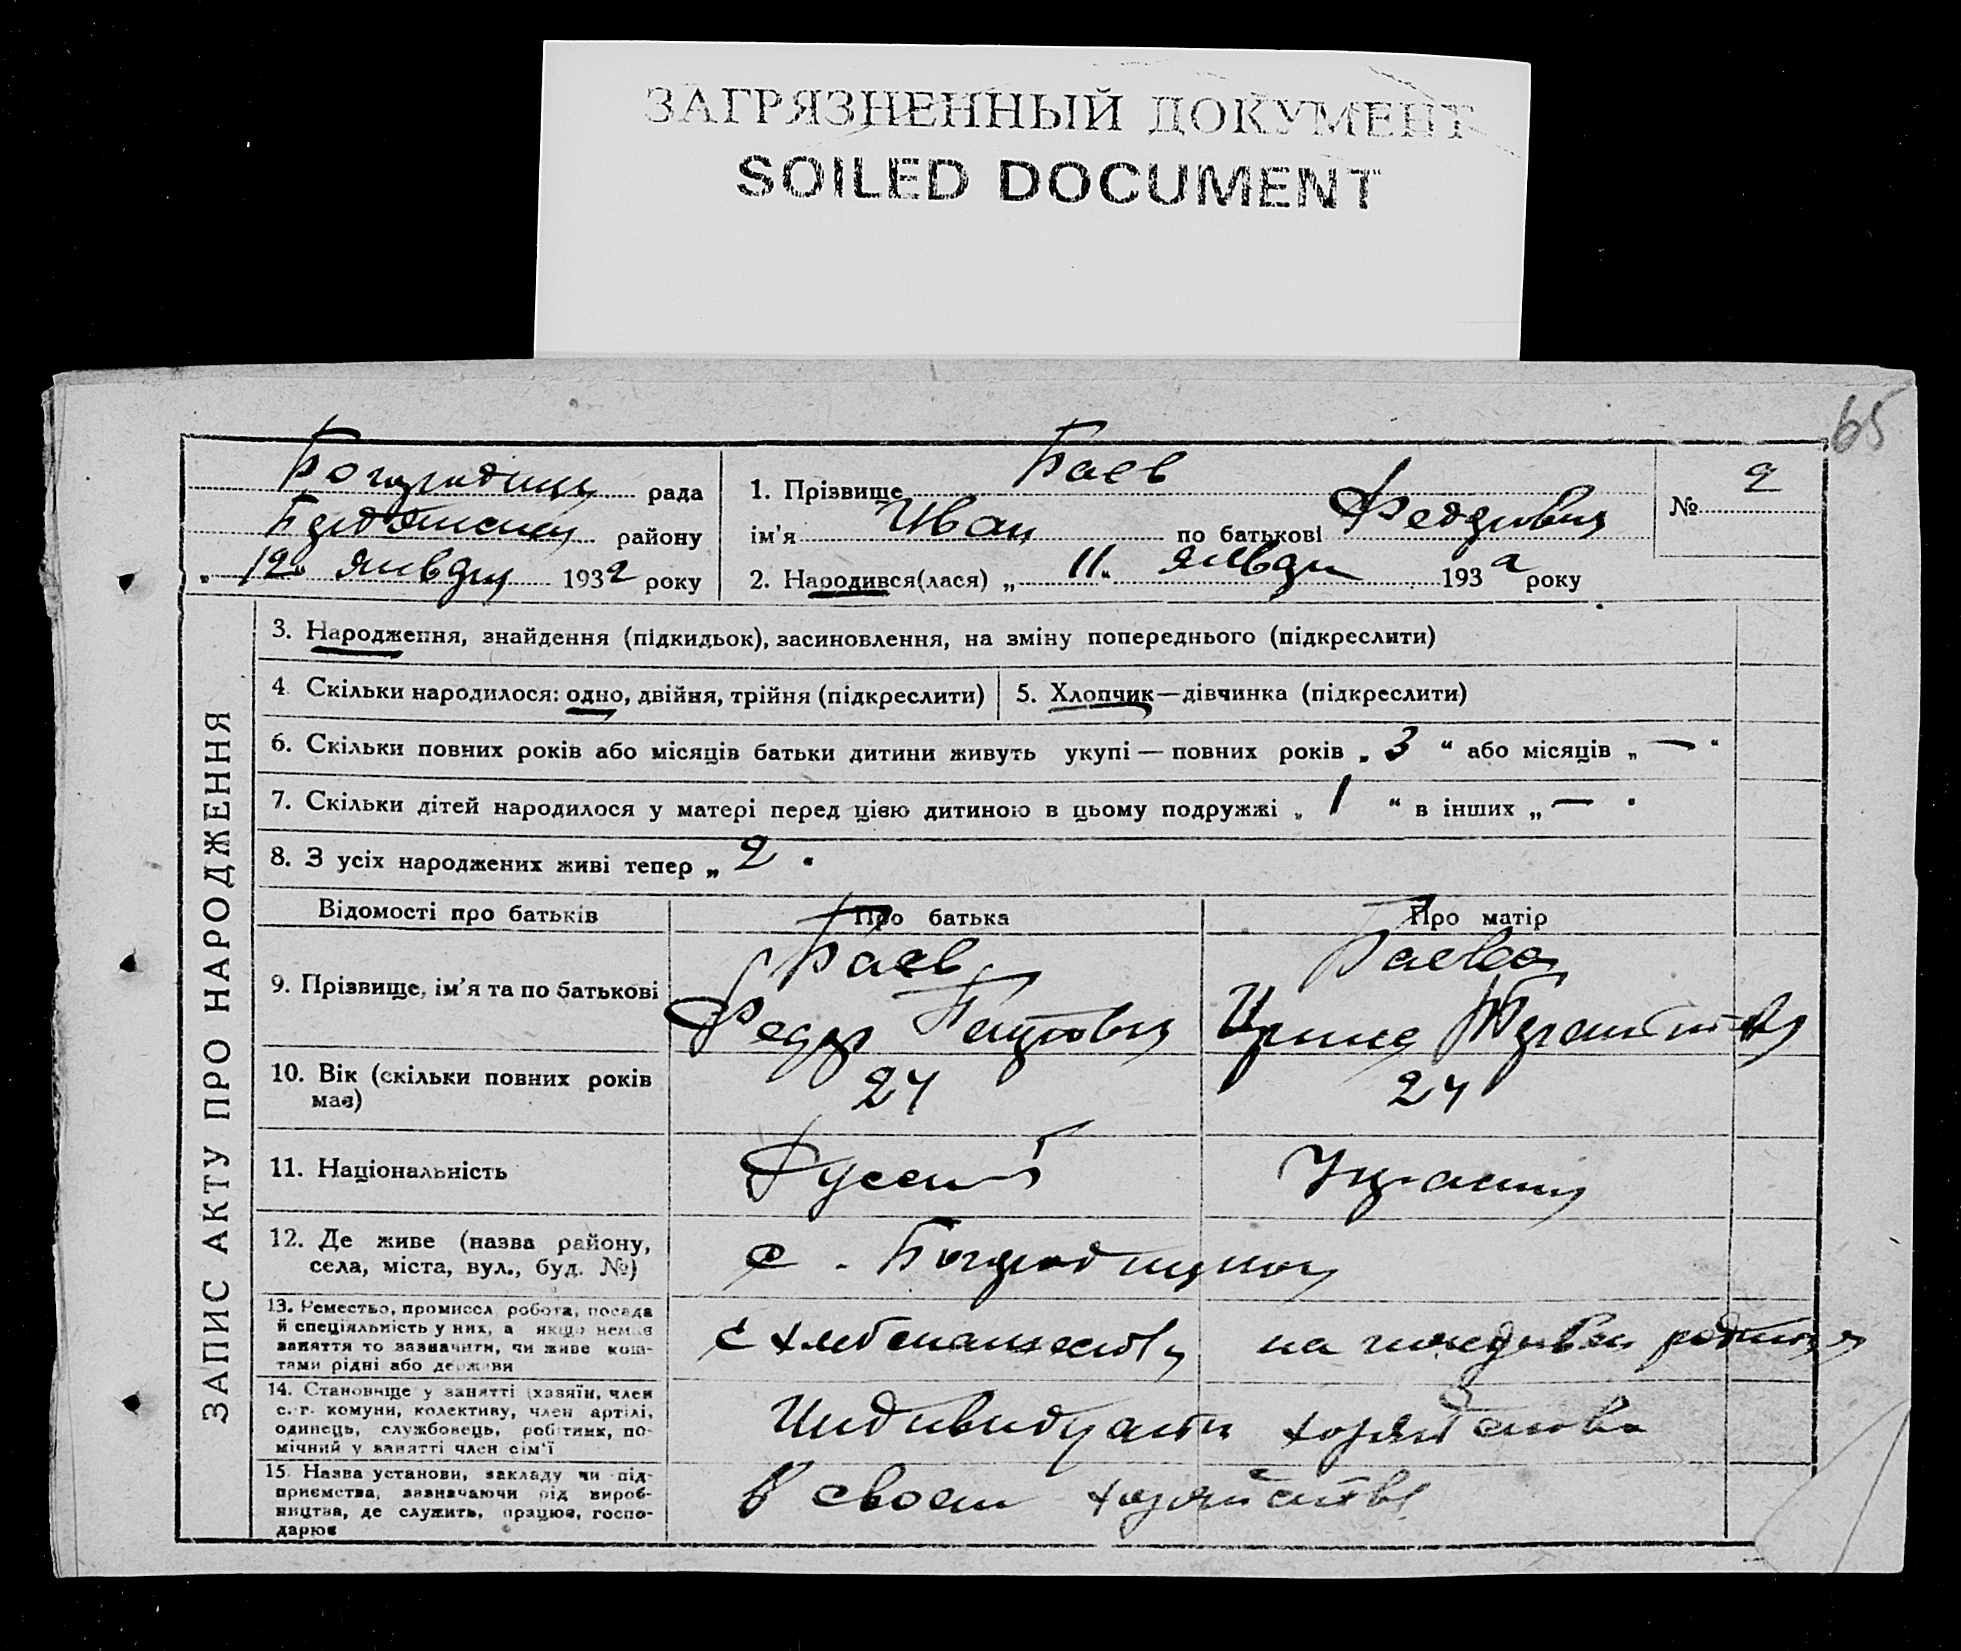 ЗАГРЯЗНЕННЫЙ ДОКУМЕНТ
SOILED DOCUMENT
65
рада
району
„ 12 " января 1932 року
1. Прізвище Баев
ім'я Иван по батькові Федорович
2. Народився(лася) „ 11 " января 1932 року
№ 2
ЗАПИС АКТУ ПРО НАРОДЖЕННЯ
3. Народження, знайдення (підкидьок), засиновлення, на зміну попереднього (підкреслити)
4. Скільки народилося: одно, двійня, трійня (підкреслити)
5. Хлопчик—дівчинка (підкреслити)
6. Скільки повних років або місяців батьки дитини живуть укупі — повних років „ 3 “ або місяців „ — “
7. Скільки дітей народилося у матері перед цією дитиною в цьому подружжі „ 1 “ в інших „ — “
8. З усіх народжених живі тепер „ 2 “
Відомості про батьків
Про батька
Про матір
9. Прізвище, ім'я та по батькові
Баев
Федор
Баева
Ирина
10. Вік (скільки повних років
має)
24
24
11. Національність
Русский
12. Де живе (назва району,
села, міста, вул., буд. №)
с.
13. Ремество, промисел, робота, посада
й спеціяльність у них, а якщо немає
заняття то зазначити, чи живе кош-
тами рідні або держави
на
14. Становище у занятті (хазяїн, член
с.-г. комуни, колективу, член артілі,
одинець, службовець, робітник, по-
мічний у занятті член сім'ї
15. Назва установи, закладу чи під-
приємства, зазначаючи рід вироб-
ництва, де служить, працює, госпо-
дарює
В своем хозяйстве